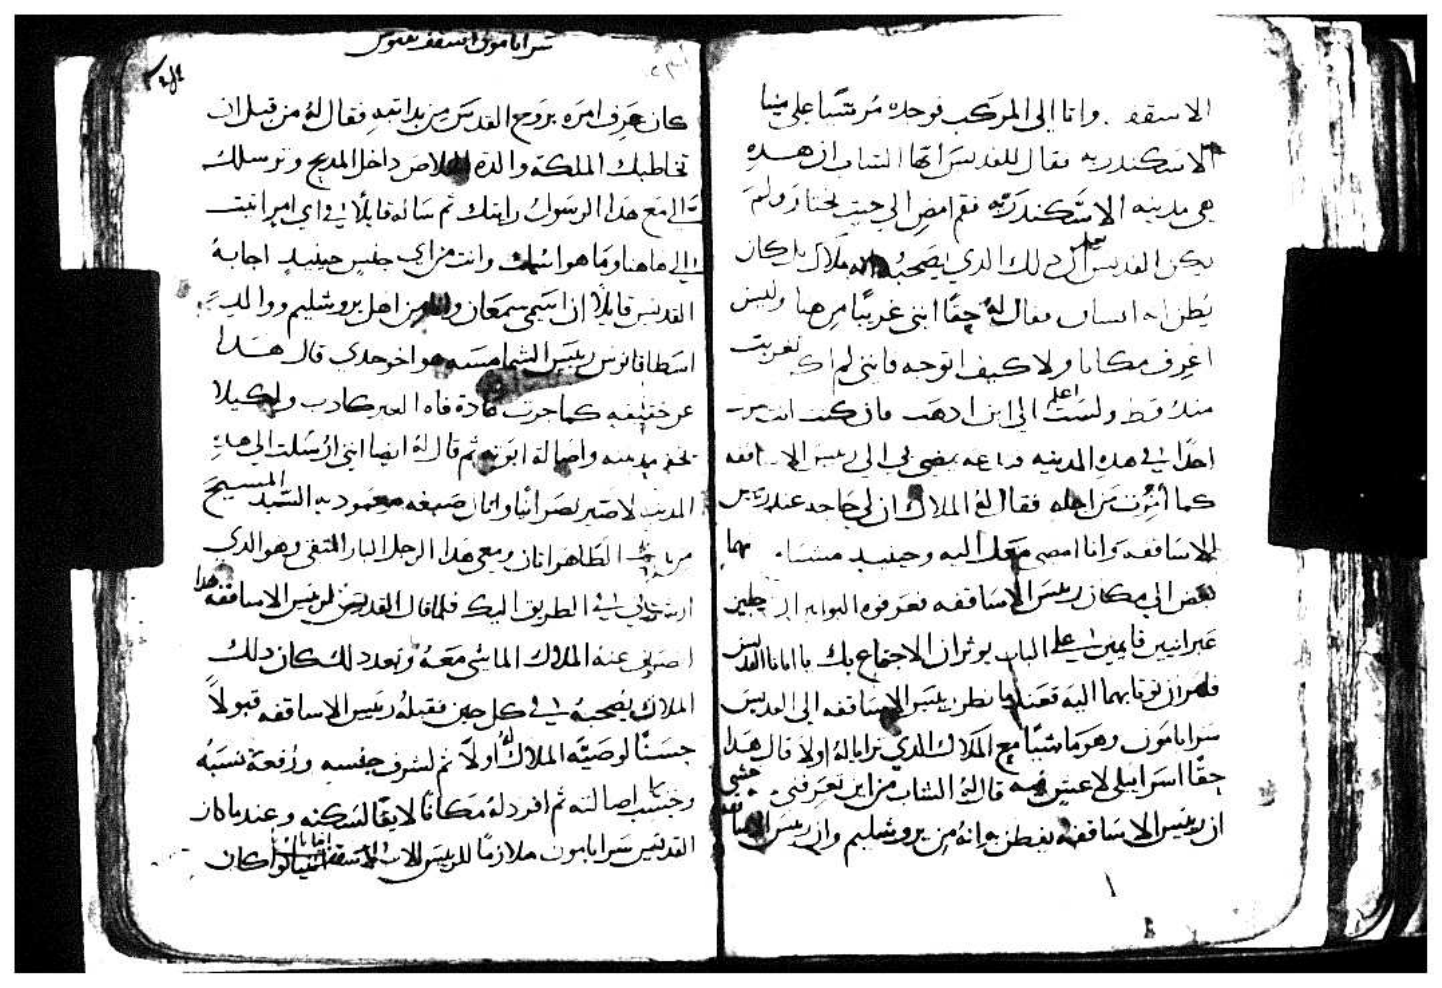 الاسقف . وانا الى المركب فوجده مُرسَّيًا على مينا
الاسكندريه فقال للقديس ايها الشاب ان هذه
هي مدينه الاسكندريه فقم امض الى حيث تختار ولم
يكن القديس يعلم ان ذلك الذي يصحبهُ انه ملاك بل كان
يظن انه انسان فقال لهُ حقًا اننى غريبًا من هنا وليس
اعرف مكانا ولا كيف اتوجه فاننى لم اكن تغربت
منذ قط ولست اعلم الى اين اذهب فان كنت انت تعرف
احدًا في هذه المدينه يمضي بي الى رييس الاساقفه
كما أُمرت من اجله فقال لهُ الملاك ان لي حاجه عند رييس
الاساقفه وانا امضي معك اليه وحينيد
الى مكان رييس الاساقفه فعرفوه البوابين ان رجلين
عبرانيين قايمين على الباب يوثران الاجتماع بك يا ابانا القديس
فامر ان يوتا بهما اليه فعندما نظر رييس الاساقفه الى القديس
سرابامون وهو ماشيًا مع الملاك الذي ترايا لهُ اولا قال هدا
حقًا اسراييلى لا غش فيه قال لهُ الشاب من اين تعرفنى
ان رييس الاساقفه يفطن به انهُ من يروشليم وان رييس الاساقفه
سرابامون اسقف نقيوس
كان عرف امره بروح القدس من بدايته فقال لهُ من قبل ان
تخاطبك الملكة والدة الخلاص داخل المديح وترسلك
الي مع هذا الرسول رايتك ثم ساله قايلًا في اي امر اتيت
الى هاهنا وما هو اسمك وانت من اي جنس حينيد اجابهُ
القديس قايلًا ان اسمى سمعان وانا من اهل يروشليم ووالدي
اسطافانوس رييس الشمامسه هو اخو جدي قال هذا
عن حقيقه كما جرت عادة فاه الغير كادب ولكيلا
مدينه واصالة ابويه ثم قال لهُ ايضا اننى ارسلت الى هده
المدينه لاصير نصرانيا وانال صبغه معموديه السيد المسيح
الطاهر انا ومعى هدا الرجل البار المتقى وهو الدي
ارشدني في الطريق اليك فلما قال القديس لرييس الاساقفه هدا
اختفى عنه الملاك الماشى معهُ وبعد ذلك كان ذلك
الملاك يصحبهُ في كل حين فقبلهُ رييس الاساقفه قبولًا
حسنًا لوصيَّه الملاك لهُ اولًا ثم لشرف جنسه ورفعة نسبهُ
وحسب اصالته ثم افرد لهُ مكانًا لايقًا لسكنه وعندما كان
القديس سرابامون ملازمًا للرييس الاب وكان